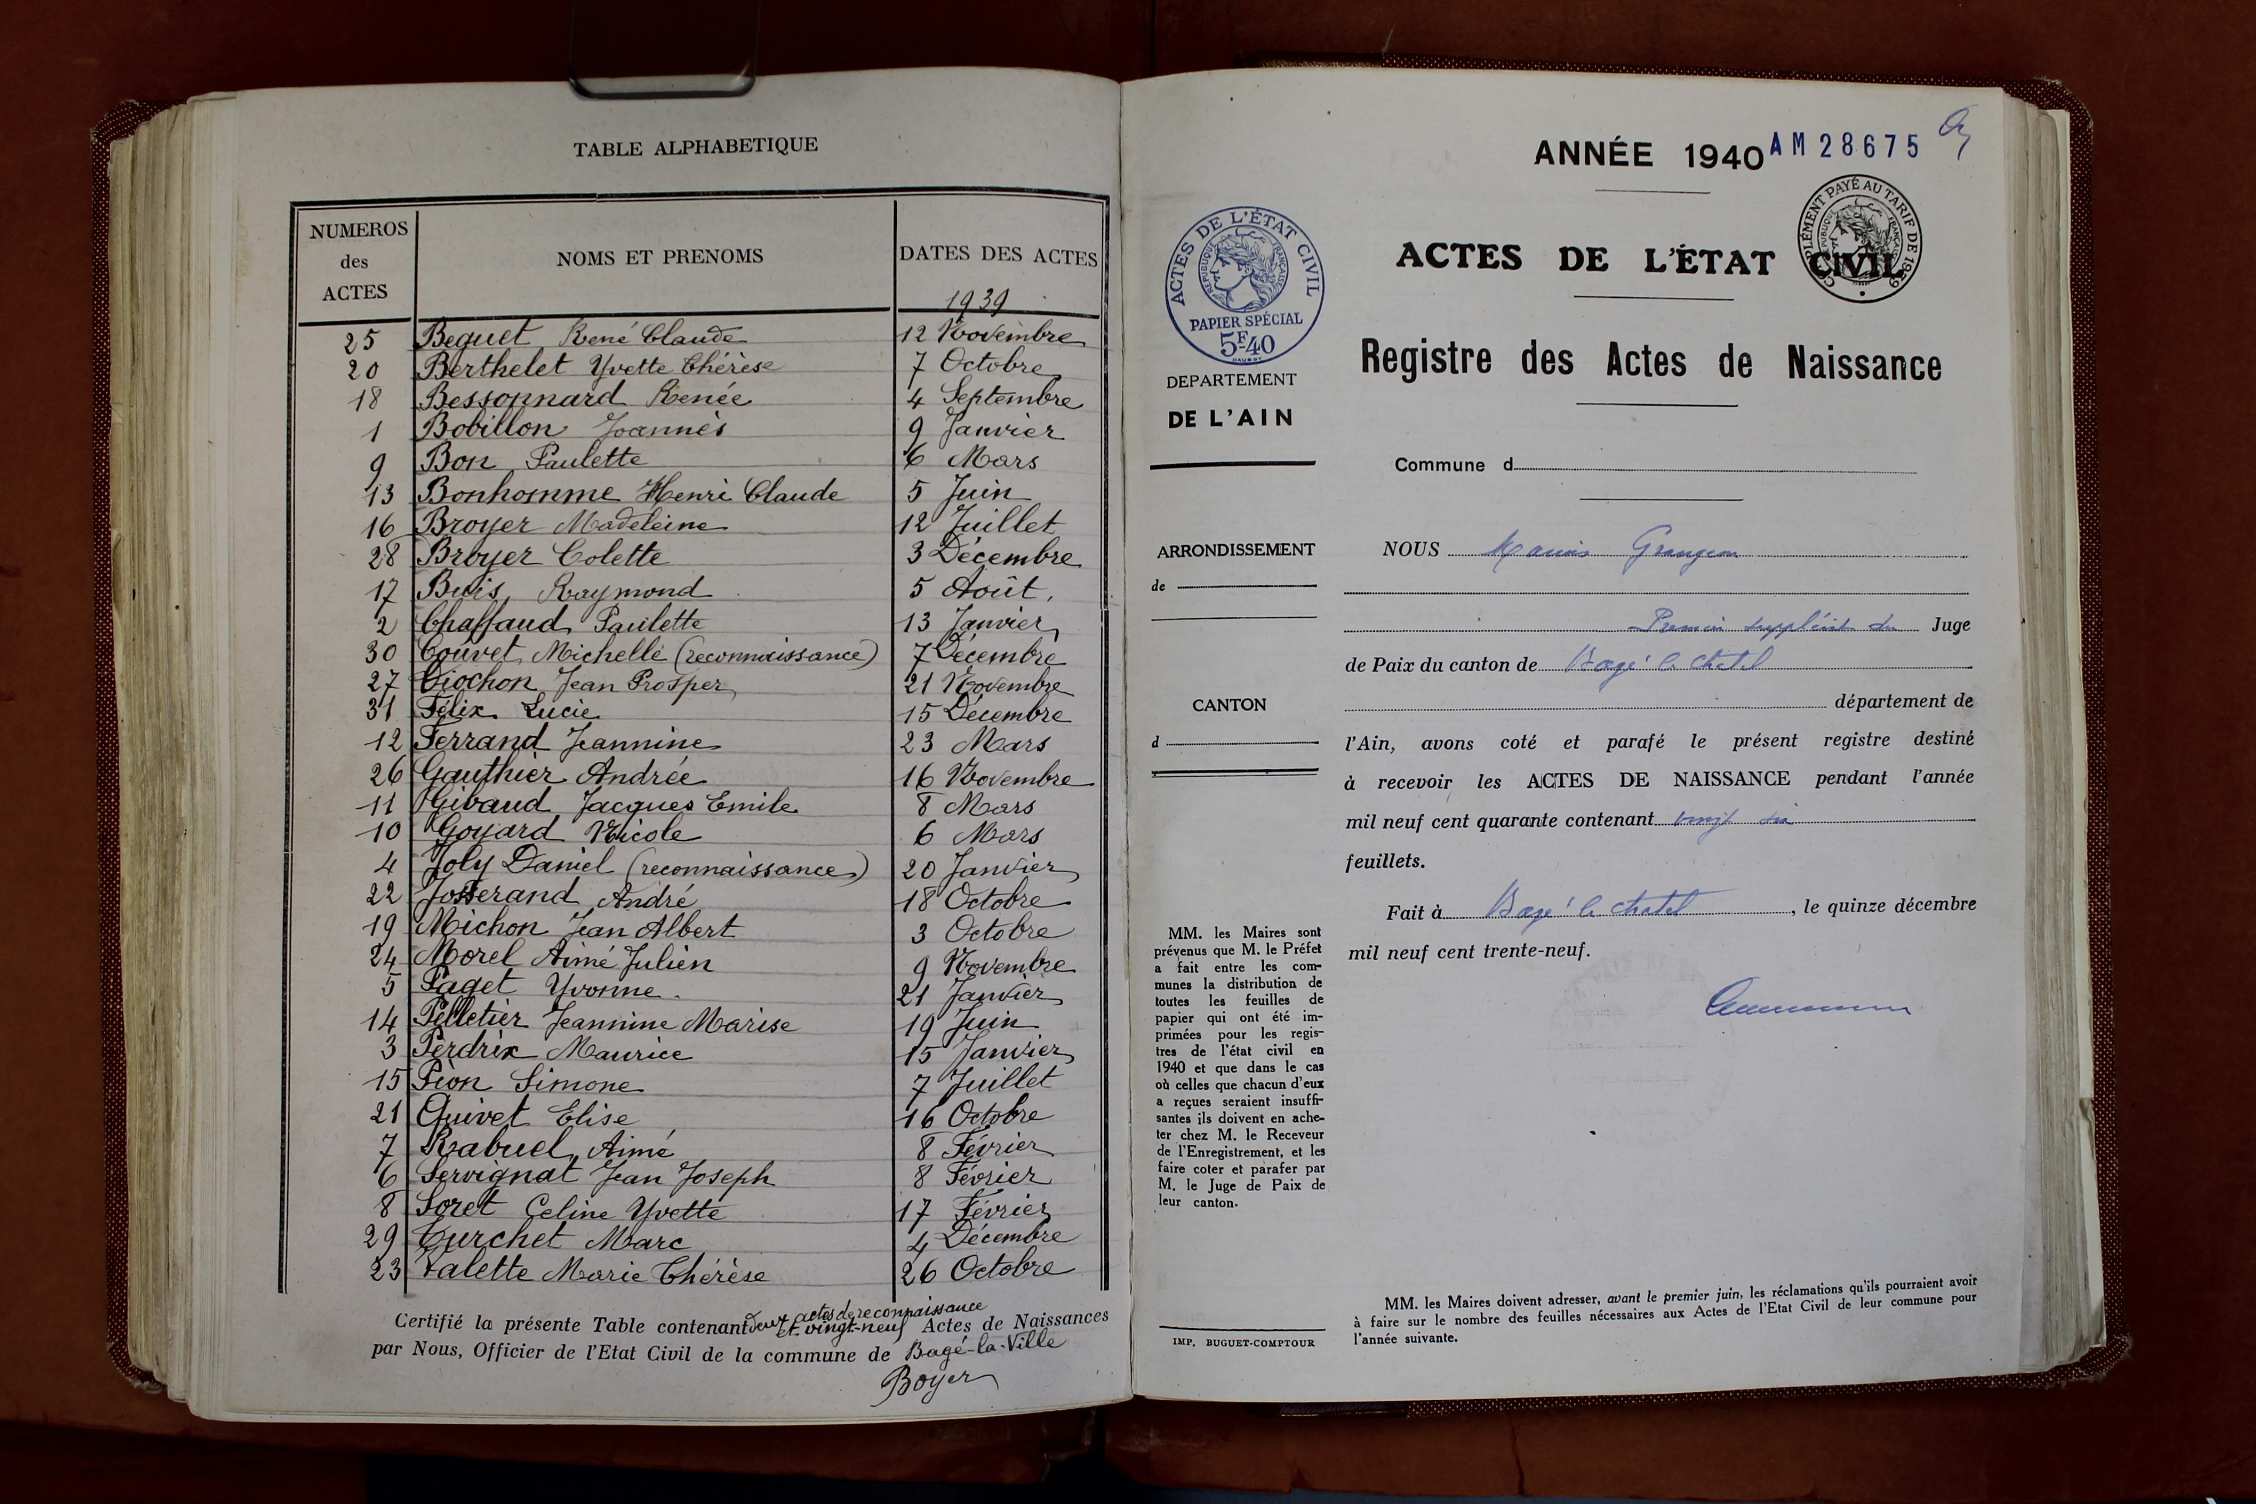 TABLE ALPHABETIQUE
NUMEROS des ACTES
NOMS ET PRENOMS
DATES DES ACTES
1939
25 Beguet René Claude 12 Novembre
20 Berthelet Yvette Thérèse 7 Octobre
18 Bessonnard Renée 4 Septembre
1 Bobillon Joannès 9 Janvier
9 Bon Paulette 6 Mars
13 Bonhomme Henri Claude 5 Juin
16 Broyer Madeleine 12 Juillet
28 Broyer Colette 3 Décembre
17 Buis Raymond 5 Août
2 Chaffaud Paulette 13 Janvier
30 Couvet Michelle (reconnaissance) 7 Décembre
27 Ciochon Jean Prosper 21 Novembre
31 Félix Lucie 15 Décembre
12 Ferrand Jeannine 23 Mars
26 Gauthier Andrée 16 Novembre
11 Gibaud Jacques Emile 8 Mars
10 Goyard Nicole 6 Mars
4 Joly Daniel (reconnaissance) 20 Janvier
22 Josserand André 18 Octobre
19 Michon Jean Albert 3 Octobre
24 Morel Aimé Julien 9 Novembre
5 Paget Yvonne 21 Janvier
14 Pelletier Jeannine Marise 19 Juin
3 Perdrix Maurice 15 Janvier
15 Pion Simone 7 Juillet
21 Quivet Elise 16 Octobre
7 Rabuel Aimé 8 Février
6 Servignat Jean Joseph 8 Février
8 Soret Celine Yvette 17 Février
29 Turchet Marc 4 Décembre
23 Valette Marie Thérèse 26 Octobre
Deux actes de reconnaissance
Certifié la présente Table contenant et vingt-neuf Actes de Naissances
par Nous, Officier de l'Etat Civil de la commune de Bagé-la-Ville
Boyer
ANNÉE 1940 AM 28675
ACTES DE L'ÉTAT CIVIL
RÉPUBLIQUE FRANÇAISE
PAPIER SPÉCIAL
5F.40
COMPLÉMENT PAYÉ AU TARIF DE 1939
RÉPUBLIQUE FRANÇAISE
ACTES DE L'ÉTAT CIVIL
Registre des Actes de Naissance
DEPARTEMENT
DE L'AIN
Commune d
ARRONDISSEMENT
de
CANTON
d
NOUS Marius Grangeon
Premier suppléant du Juge
de Paix du canton de Bagé le Chatel
département de
l'Ain, avons coté et parafé le présent registre destiné
à recevoir les ACTES DE NAISSANCE pendant l'année
mil neuf cent quarante contenant vingt six
feuillets.
Fait à Bagé le Chatel, le quinze décembre
mil neuf cent trente-neuf.
MM. les Maires sont
prévenus que M. le Préfet
a fait entre les com-
munes la distribution de
toutes les feuilles de
papier qui ont été im-
primées pour les regis-
tres de l'état civil en
1940 et que dans le cas
où celles que chacun d'eux
a reçues seraient insuffi-
santes ils doivent en ache-
ter chez M. le Receveur
de l'Enregistrement, et les
faire coter et parafer par
M. le Juge de Paix de
leur canton.
IMP. BUGUET-COMPTOUR
MM. les Maires doivent adresser, avant le premier juin, les réclamations qu'ils pourraient avoir
à faire sur le nombre des feuilles nécessaires aux Actes de l'Etat Civil de leur commune pour
l'année suivante.